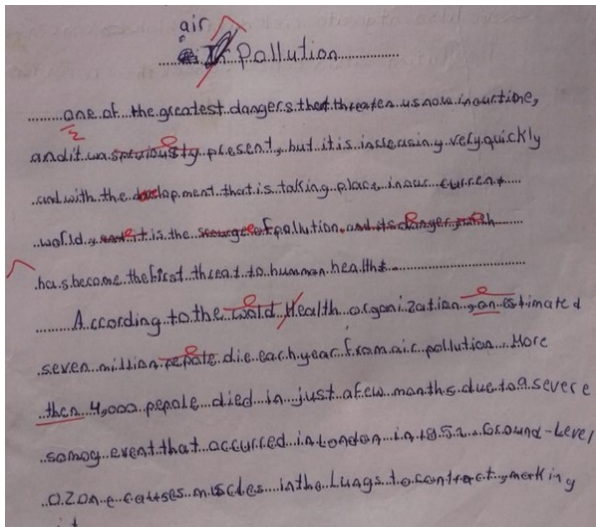 air
Pollution
one of the greatest dangers that threaten us now in our time,
and it was previously present, but it is increasing very quickly
and with the development that is taking place in our current
world, and it is the scourge of pollution and its danger, which
has become the first threat to humman health.
According to the World Health organization, an estimated
seven million pepole die each year from air pollution. More
then 4,000 pepole died in just a few months due to a severe
somog event that accurred in London in 1852. Ground-Level
ozone causes muscles in the Lungs to contract, marking